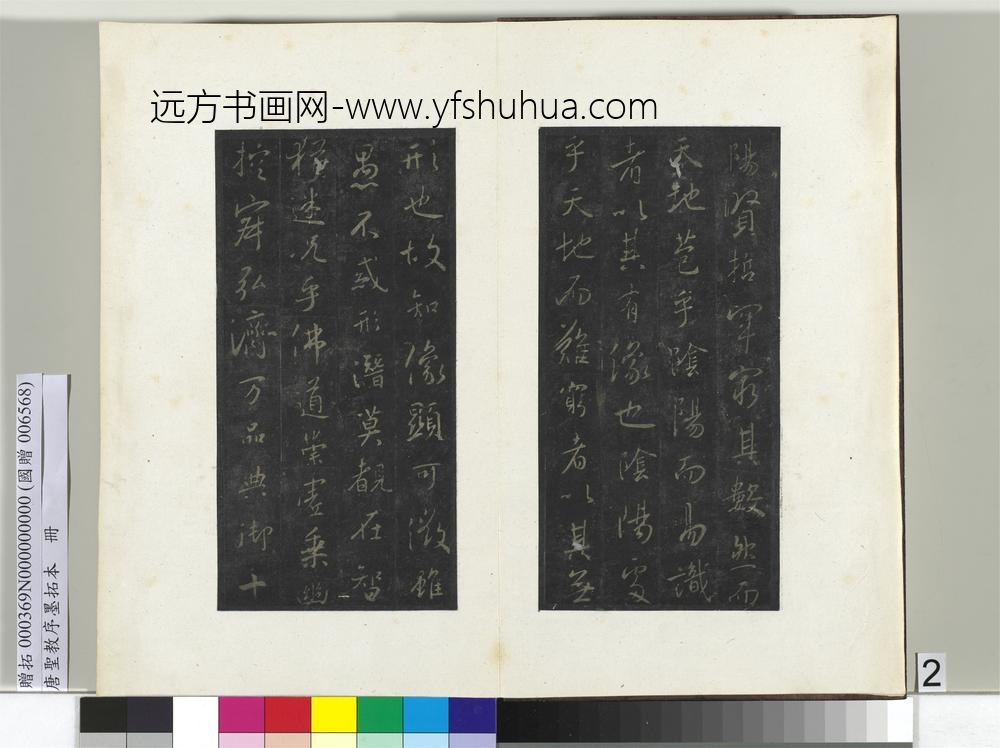 远方书画网-www.yfshuhua.com
陽賢哲罕窮其數然而
天地苞乎陰陽而易識
者以其有像也陰陽處
乎天地而難窮者以其無
形也故知像顯可徵雖
愚不惑形潛莫覩在智
猶迷況乎佛道崇虛乘幽
控寂弘濟万品典御十
贈拓 000369N000000000 (國贈 006568)
唐聖教序墨拓本 冊
2